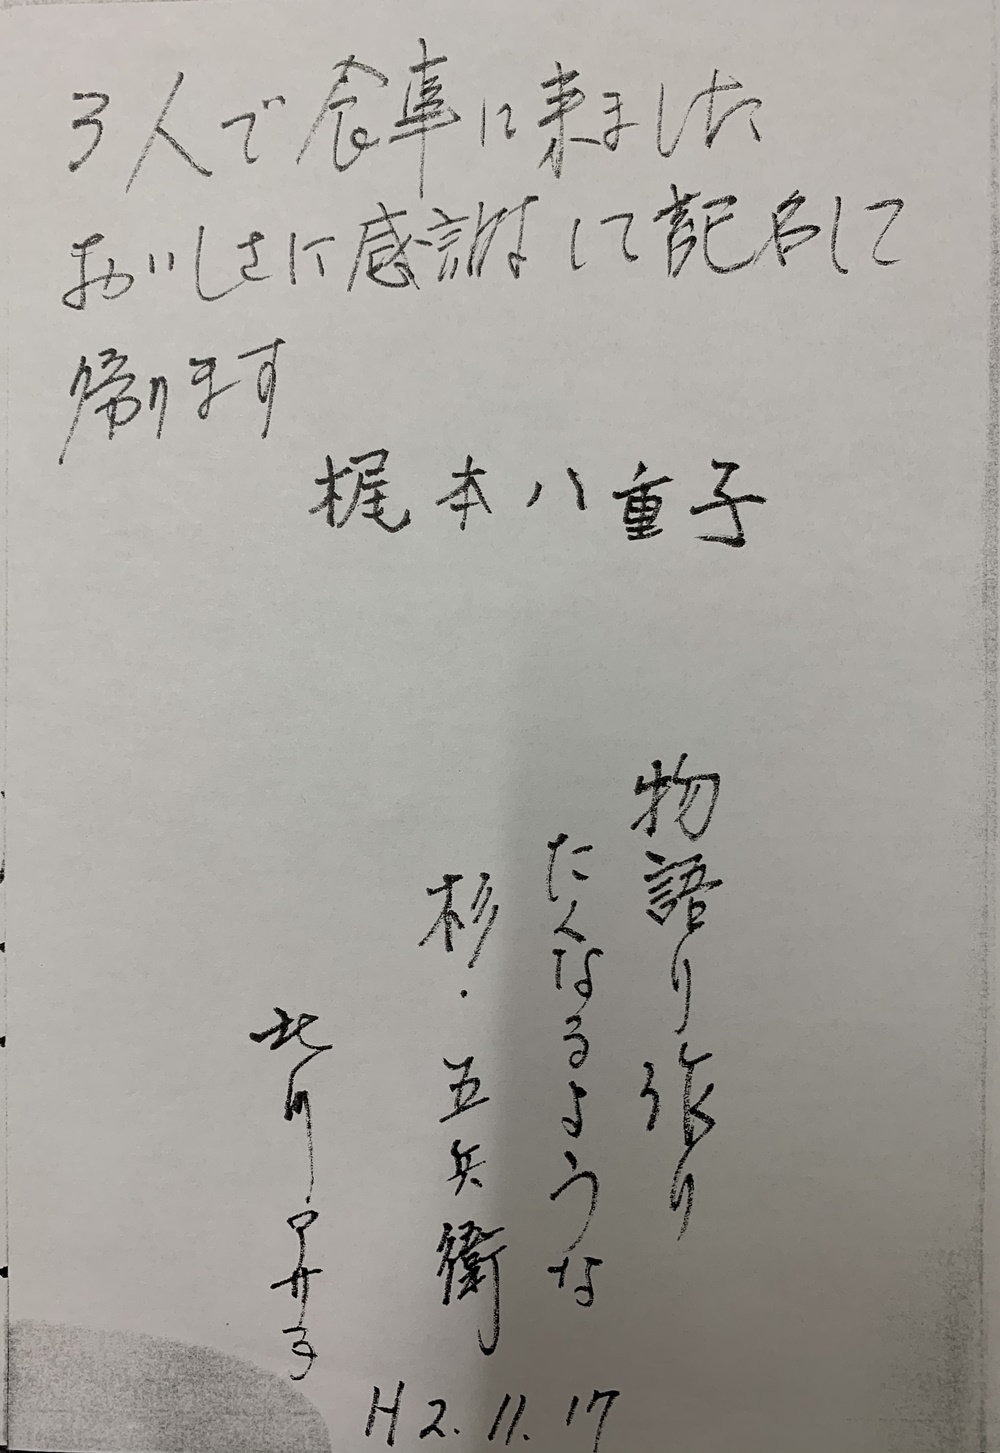 3人で食事に来ました
おいしさに感謝して記名して
帰ります
梶本八重子
物語り作り
たくなるような
杉・五兵衛
北川
子
H2.11.17